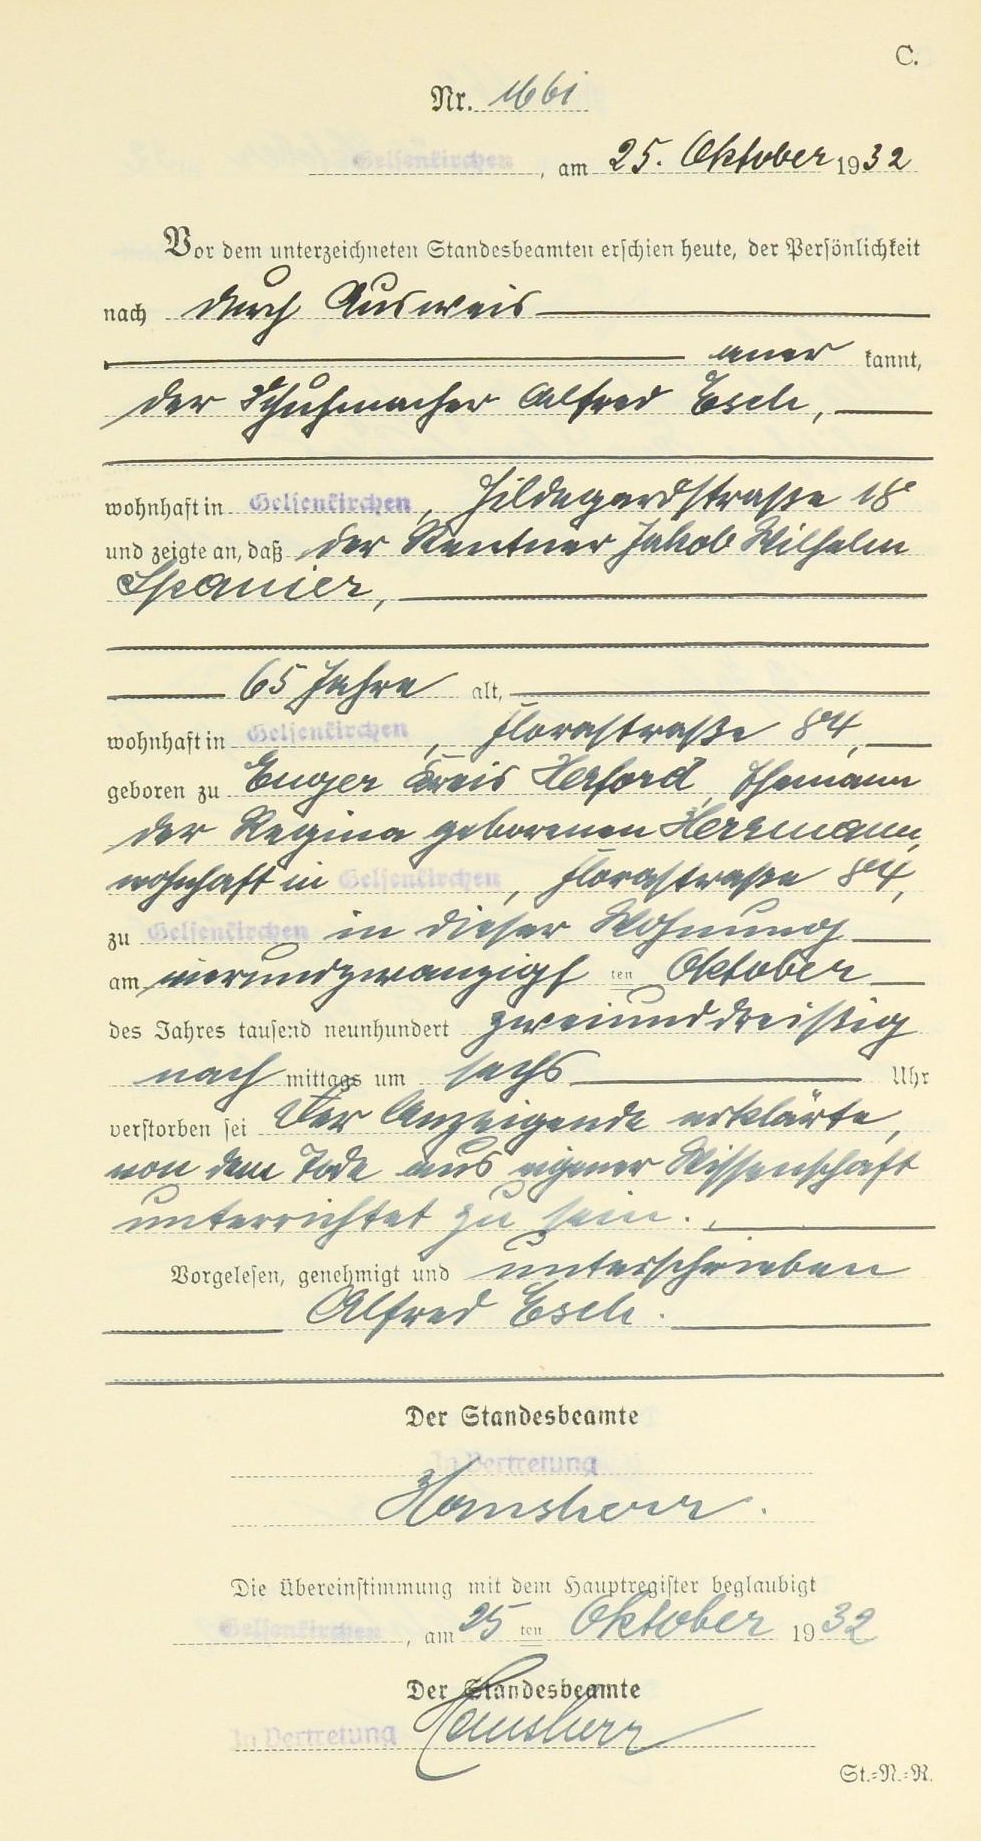 C.
Nr. 1661
Gelsenkirchen, am 25. Oktober 1932
Vor dem unterzeichneten Standesbeamten erschien heute, der Persönlichkeit
nach durch Ausweis
aner kannt,
der Schuhmacher Alfred Esch,
wohnhaft in Gelsenkirchen, Hildegardstraße 18
und zeigte an, daß der Rentner Jakob Wilhelm
Spanier,
65 Jahre alt,
wohnhaft in Gelsenkirchen, Florastraße 84,
geboren zu Enger Kreis Herford, Ehemann
der Regina geborenen Herrmann,
wohnhaft in Gelsenkirchen, Florastraße 84,
zu Gelsenkirchen in dieser Wohnung
am vierundzwanzigs ten Oktober
des Jahres tausend neunhundert zweiunddreißig
nach mittags um sechs Uhr
verstorben sei Der Anzeigende erklärte,
von dem Tode aus eigener Wissenschaft
unterrichtet zu sein.
Vorgelesen, genehmigt und unterschrieben
Alfred Esch.
Der Standesbeamte
In Vertretung
Die Übereinstimmung mit dem Hauptregister beglaubigt
Gelsenkirchen, am 25 ten Oktober 1932
Der Standesbeamte
In Vertretung
St.=N.=R.